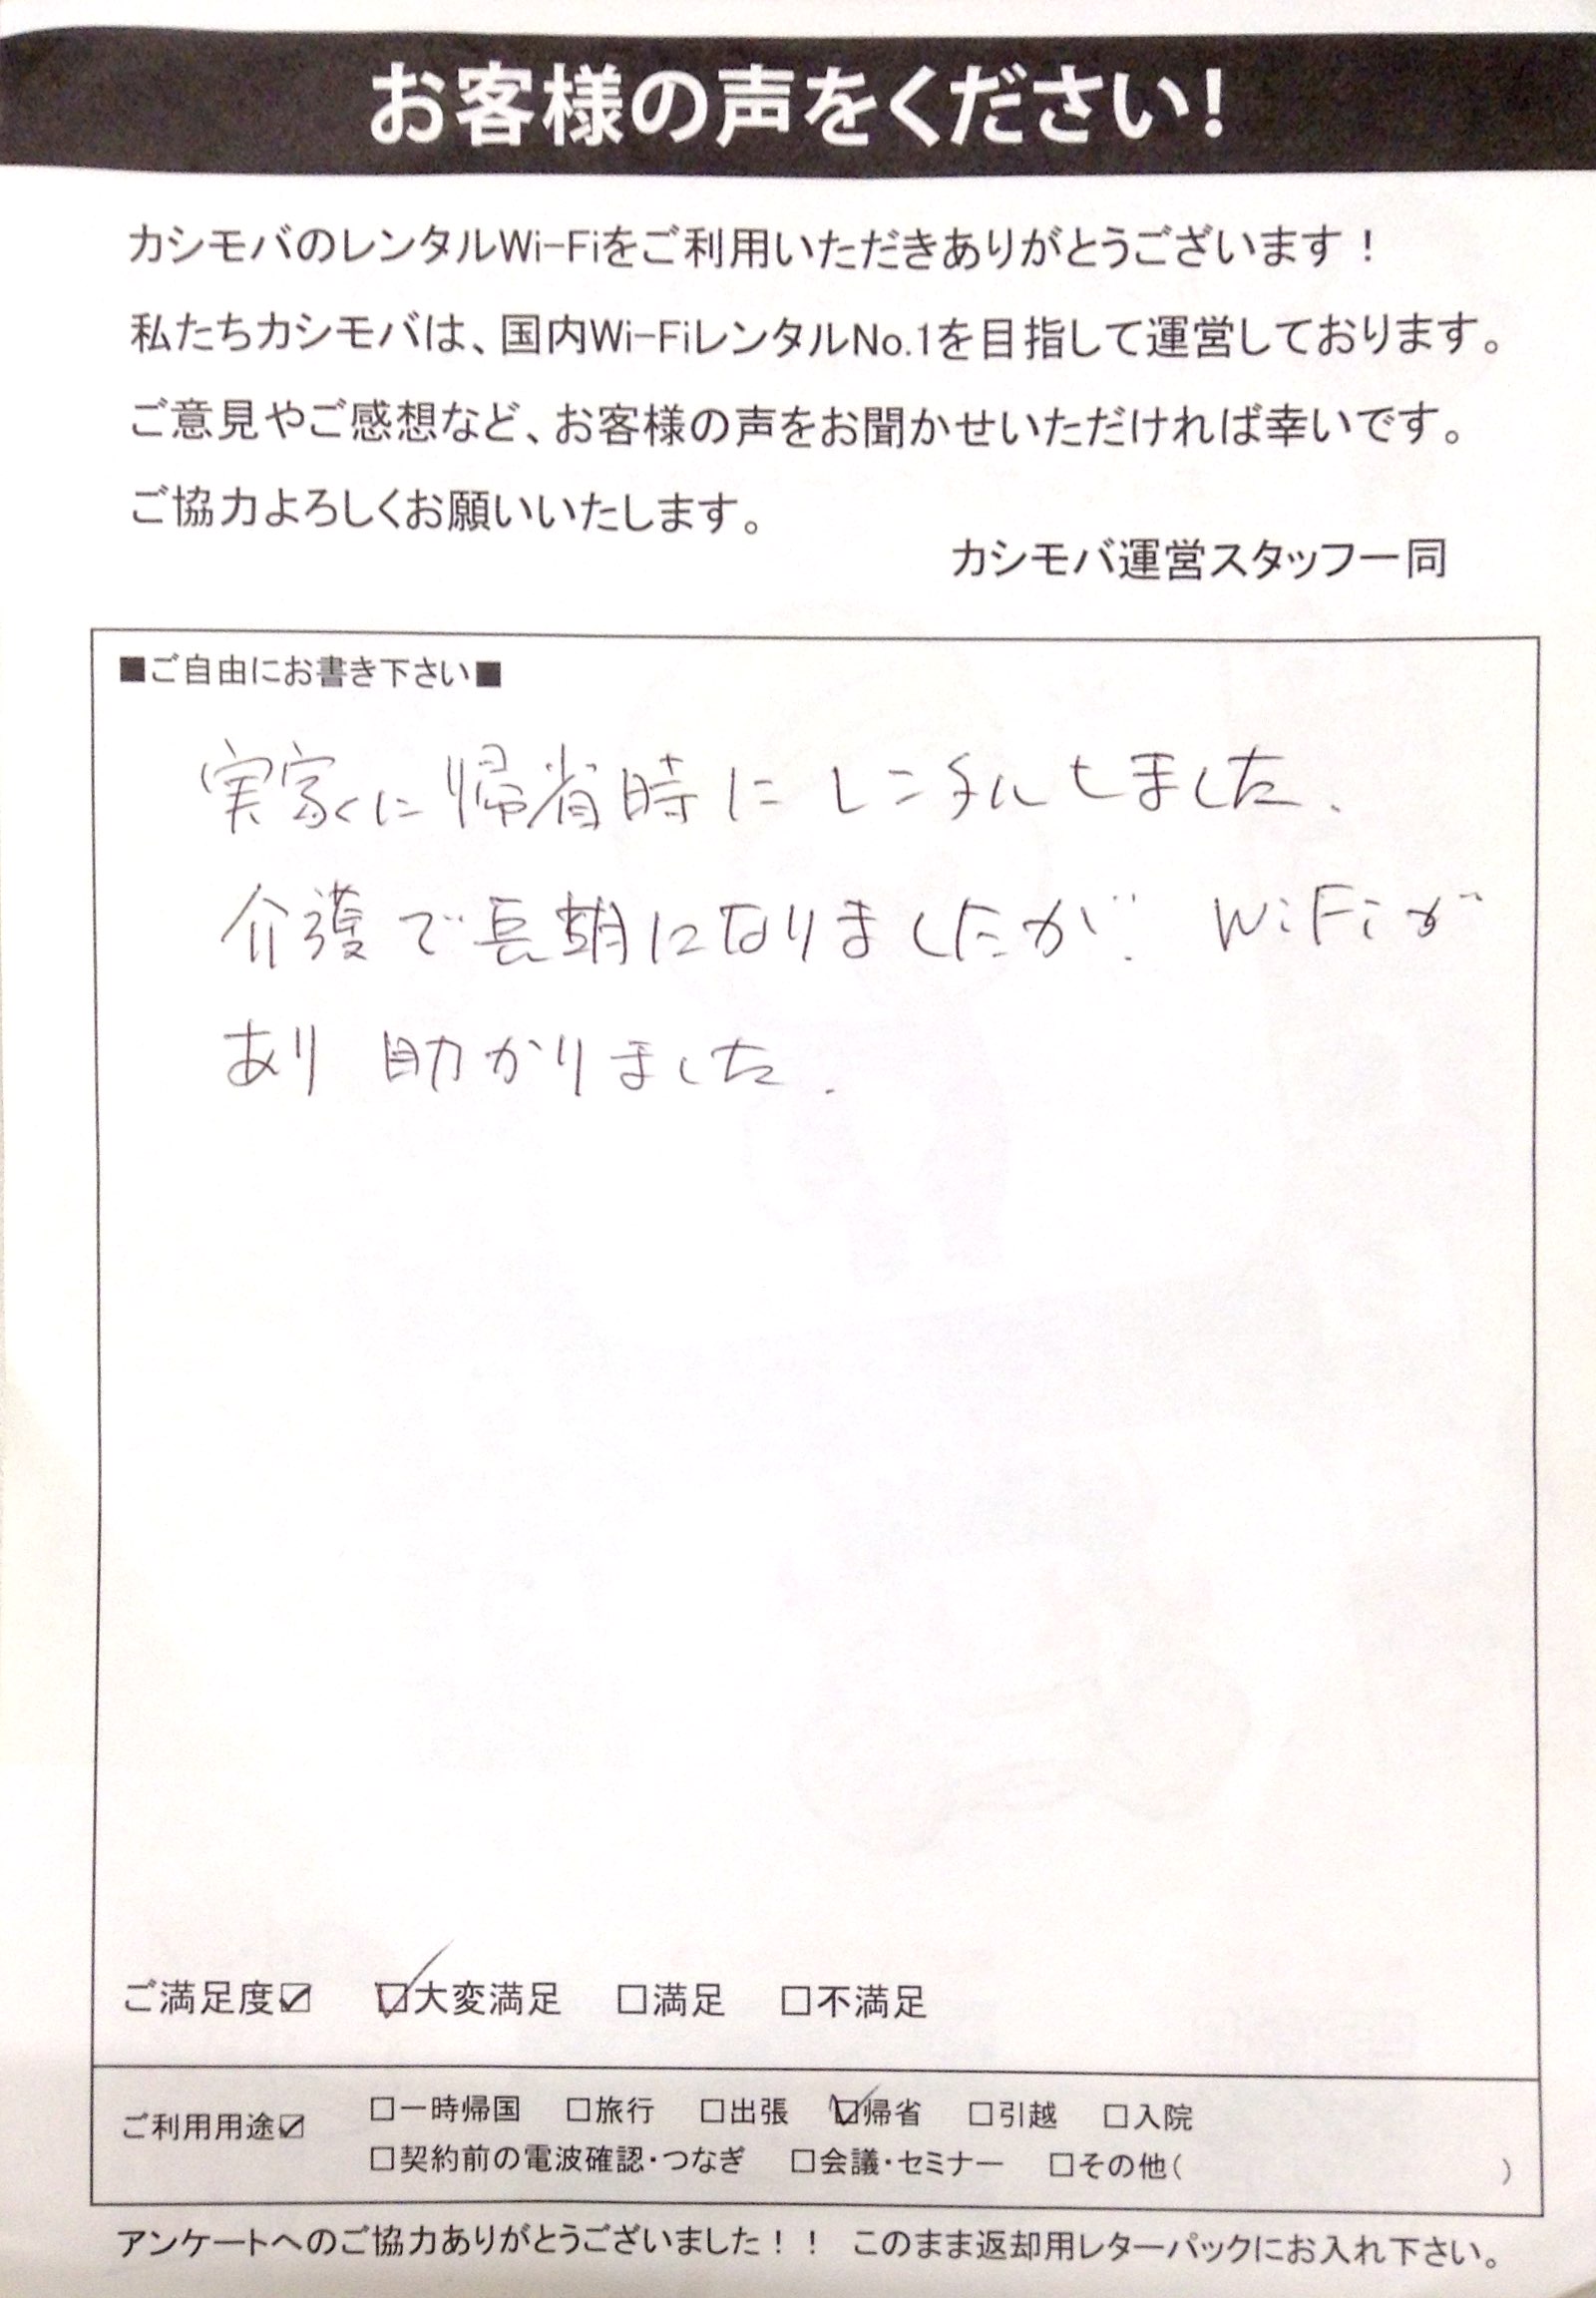 お客様の声をください!
カシモバのレンタルWi-Fiをご利用いただきありがとうございます！
私たちカシモバは、国内Wi-FiレンタルNo.1を目指して運営しております。
ご意見やご感想など、お客様の声をお聞かせいただければ幸いです。
ご協力よろしくお願いいたします。
カシモバ運営スタッフ一同
■ご自由にお書き下さい■
実家に帰省時にレンタルしました、
介護で長期になりましたが、WiFiが
あり 助かりました.
ご満足度☑ ☑大変満足 □満足 □不満足
ご利用用途☑ □一時帰国 □旅行 □出張 ☑帰省 □引越 □入院
□契約前の電波確認・つなぎ □会議・セミナー □その他( )
アンケートへのご協力ありがとうございました！！ このまま返却用レターパックにお入れ下さい。